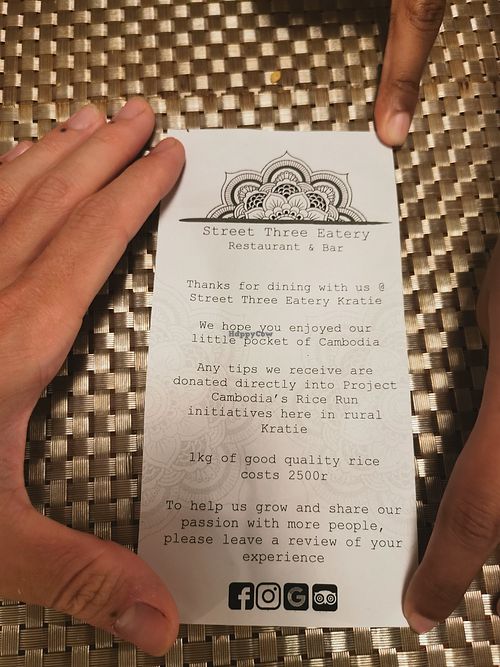 Street Three Eatery
Restaurant & Bar
Thanks for dining with us @
Street Three Eatery Kratie
We hope you enjoyed our
little pocket of Cambodia
HappyCow
Any tips we receive are
donated directly into Project
Cambodia's Rice Run
initiatives here in rural
Kratie
1kg of good quality rice
costs 2500r
To help us grow and share our
passion with more people,
please leave a review of your
experience